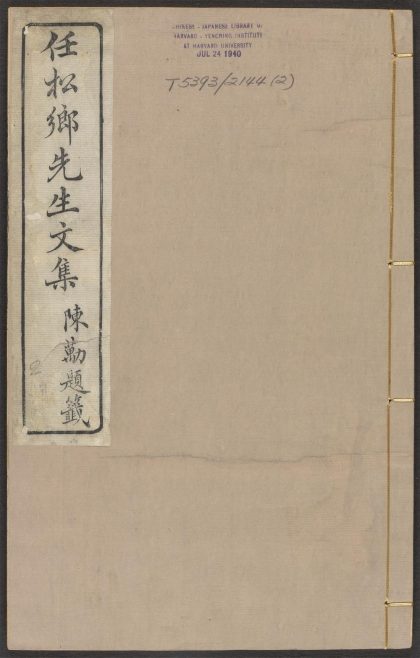 任松鄉先生文集
陳勱題籤
CHINESE - JAPANESE LIBRARY OF
HARVARD - YENCHING INSTITUTE
AT HARVARD UNIVERSITY
JUL 24 1940
T5393/2144(2)
2